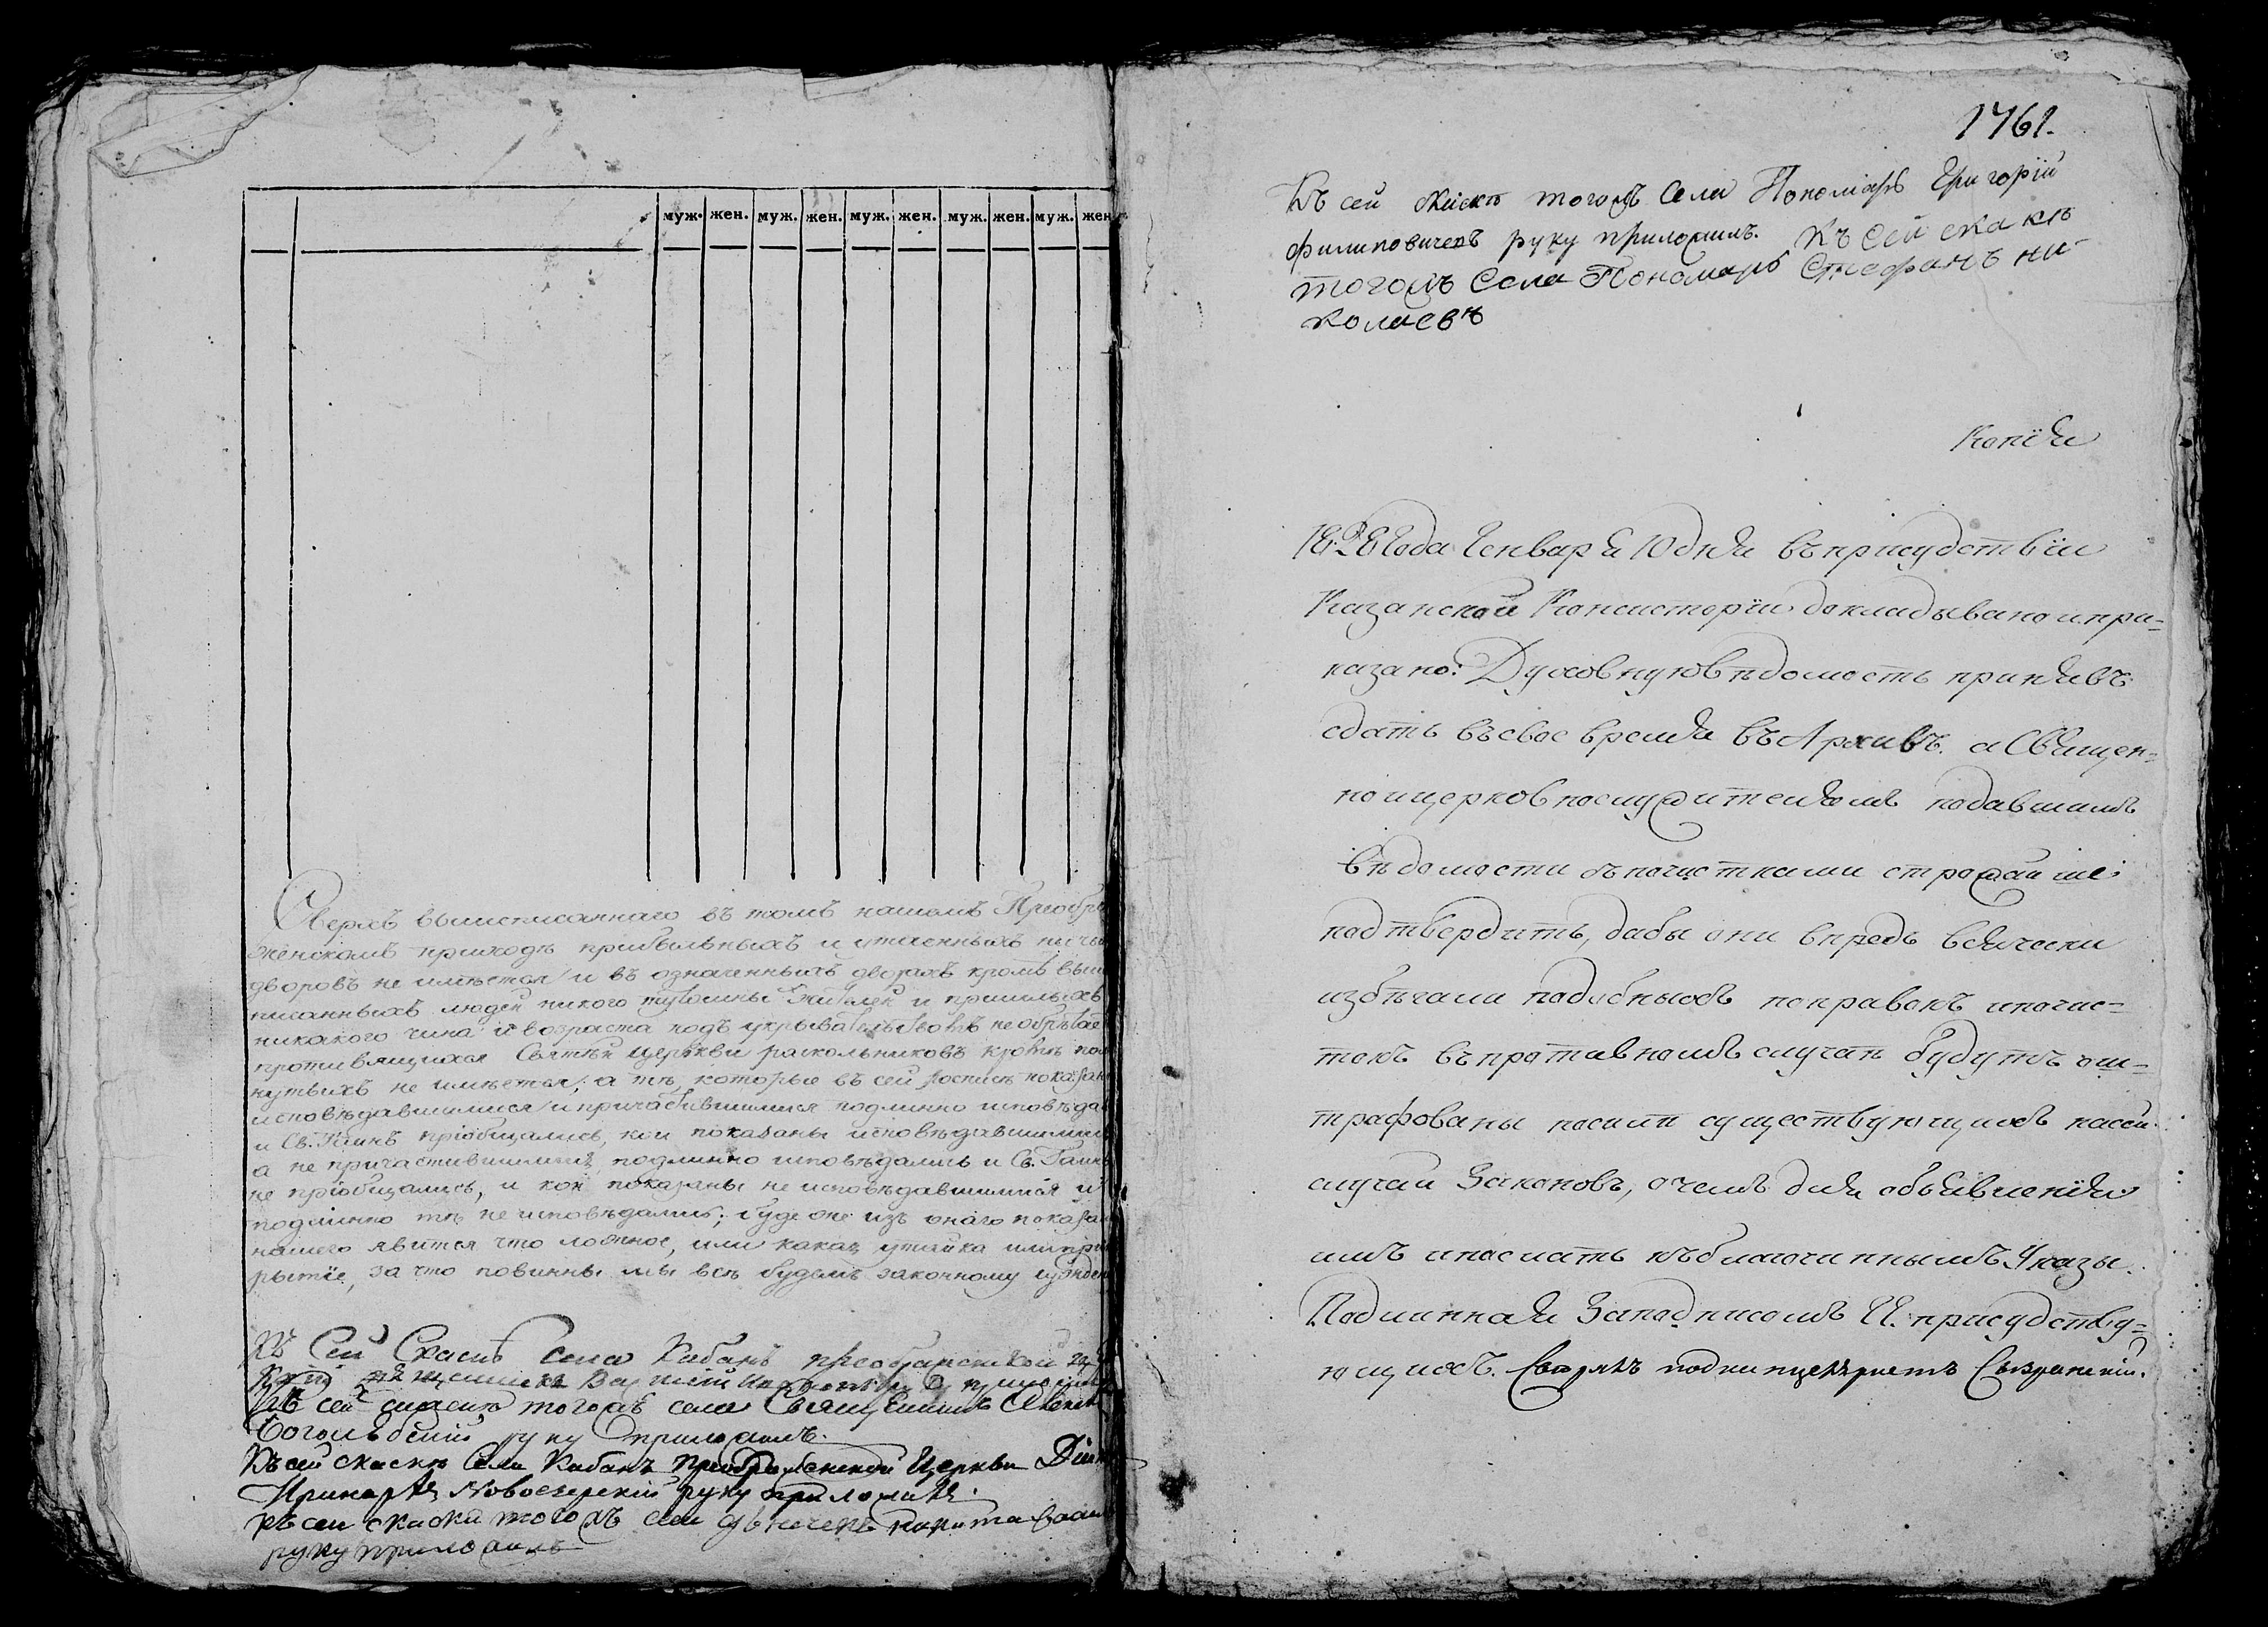 муж. жен. муж. жен. муж. жен. муж. жен. муж. жен
Сверхъ вышеписаннаго въ томъ нашемъ Преобра
женскомъ приходѣ прибыльныхъ и утаенныхъ ничь
дворовъ не имѣется и въ означенныхъ дворахъ кромѣ выш
писанныхъ людей никого жителей и пришлыхъ
никакого чина и возраста подъ укрывательствомъ не обрѣтае
противящихся Святѣй церкви раскольниковъ кромѣ по
нутыхъ не имѣется; а тѣ, которые въ сей росписѣ показан
исповѣдавшимися и причастившимися подлинно исповѣда
и Св. Таинъ пріобщались, кои показаны исповѣдавшимис
а не причастившимися, подлинно исповѣдались и Св. Таинъ
не пріобщались, и кои показаны не исповѣдавшимися и
подлинно тѣ не исповѣдались; буде же изъ онаго показан
нашего явится что ложное, или какая утайка или при
рытіе, за что повинны мы всѣ будемъ законному сужден
Къ Сей Скаскѣ Села Кабанъ преображенской
Къ сей скаскѣ тогожъ села Священникъ
Боголѣбскій руку приложилъ.
Къ сей скаскѣ Села Кабанъ преображенской Церкви Діяк
Новоезерскій руку приложилъ.
Къ сей скаски тогожъ села дьячекъ никита
руку приложилъ
1761.
Къ сей скаскѣ тогожъ Села Пономарь Григорій
филиповичевъ руку приложилъ. Къ Сей скаскѣ
тогожъ Села Пономарь Стефанъ ни-
колаевъ
Копія
1828 года Генваря 10 дня въ присудствіи
Казанской Консисторіи докладывано и при=
казано: Духовную вѣдомость принявъ
сдать въ свое время въ Архивъ. а Священ=
но и церковнослужителямъ подавшимъ
вѣдомости съ почистками строжайше
подтвердить, дабы они впредь всячески
избѣгали подобныхъ поправокъ и почис=
токъ въ противномъ случаѣ будутъ ош=
трафованы по силѣ существующихъ на сей
случай Законовъ, о чемъ для объявленія
имъ и послать къ благочиннымъ Указы.
Подлинная За подписомъ Гг. присудству=
ющихъ. Сызранскій.